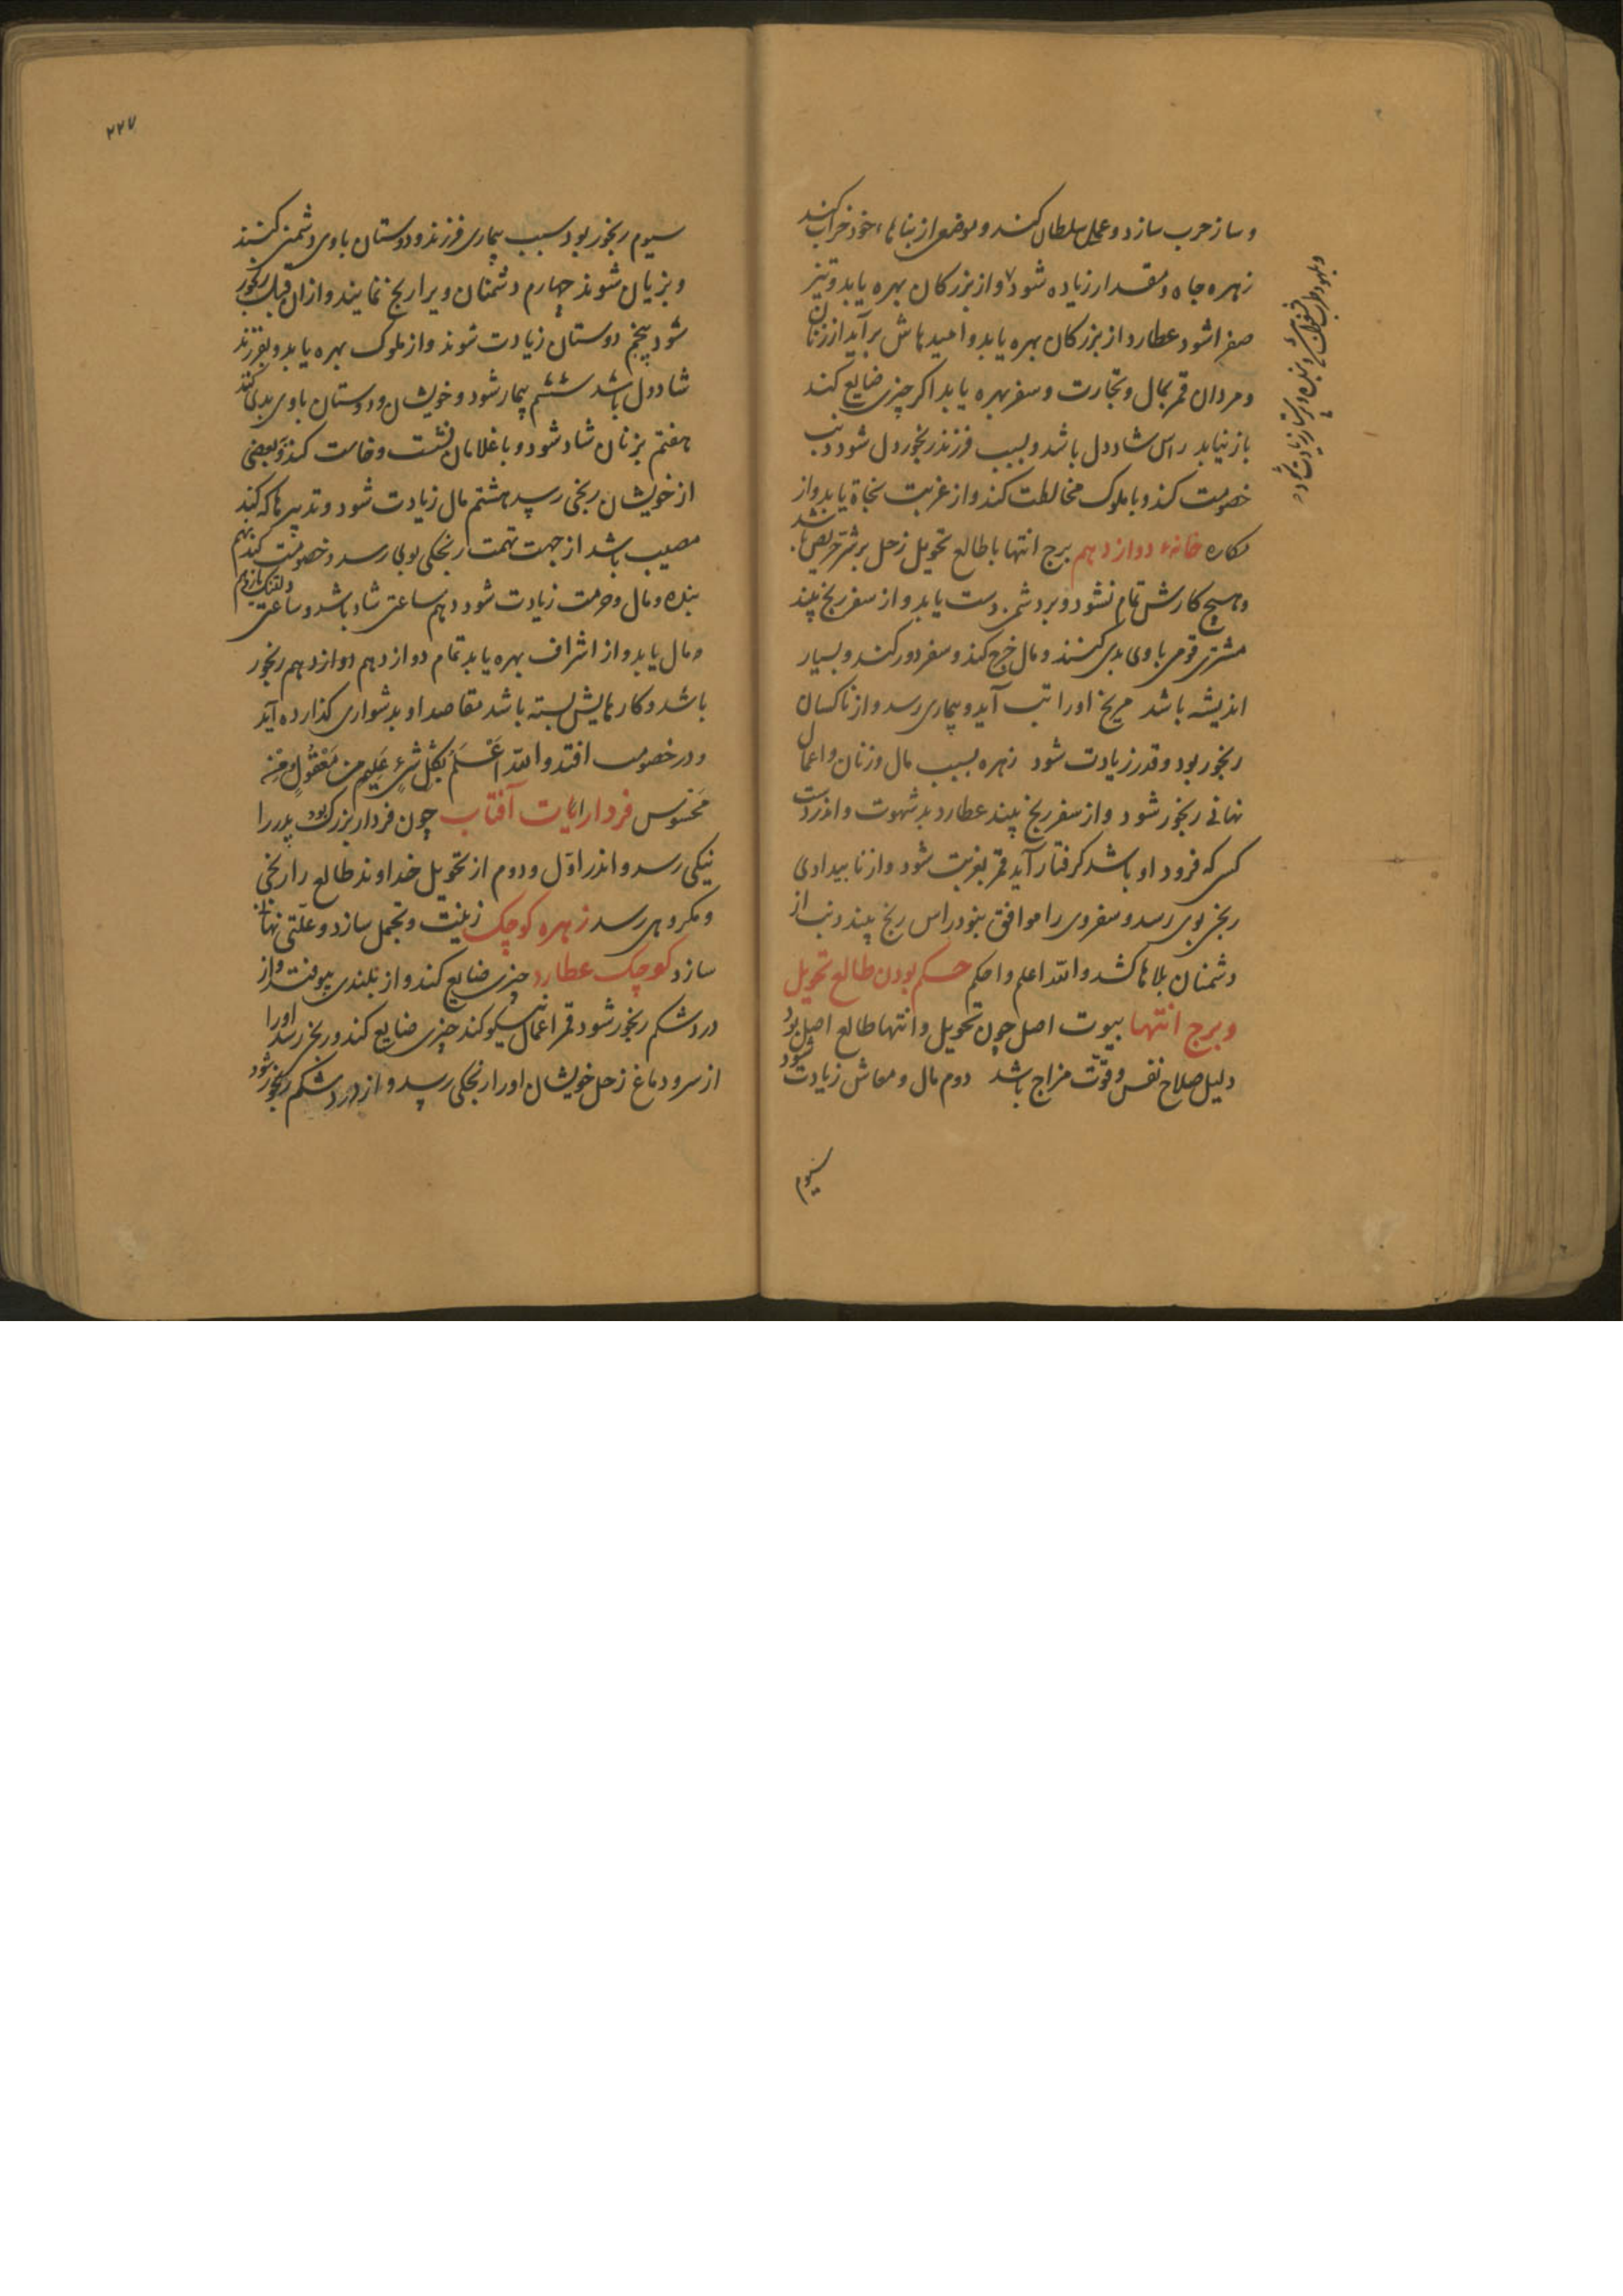 و ساز حرب سازد و عمل سلطان کند و موضعی از بناهاء خود خراب کند
زهره جاه و مقدار زیاده شود و از بزرکان بهره یابد و تیز
صفرا شود عطارد از بزرکان بهره یابد و امیدهاش برآید از زنان
و مردان قمر بمال و تجارت و سفر بهره یابد اکر چیزی ضایع کند
باز نیابد راس شاددل باشد و بسبب فرزند رنجوردل شود ذنب
خصومت کند و با ملوک مخالطت کند و از غربت نجاة یابد و از
مکاره خانهٔ دوازدهم برج انتها با طالع تحویل زحل بر شر حریص باشد
و هیچ کارش تمام نشود و بر دشمن دست یابد و از سفر رنج بیند
مشتری قومی با وی بدی کنند و مال خرج کند و سفر دور کند و بسیار
اندیشه باشد مریخ او را تب آید و بیماری رسد و از ناکسان
رنجور بود و قدر زیادت شود زهره بسبب مال و زنان و اعمال
نهانی رنجور شود و از سفر رنج بیند عطارد بد شهوت و اندر دست
کسی که فرود او باشد کرفتار آید قمر بغربت شود و از نا بیدادی
رنجی بوی رسد و سفر وی را موافق نبود راس رنج بیند ذنب از
دشمنان بلاها کشد والله اعلم و احکم حکم بودن طالع تحویل
و برج انتها بیوت اصل چون تحویل و انتها طالع اصل بود
دلیل صلاح نفس و قوّت مزاج باشد دوم مال و معاش زیادت شود
سیوم
۲۲۷
سیوم رنجور بود بسبب بیماری فرزند و دوستان با وی دشمنی کنند
و بزیان شوند چهارم دشمنان ویرا رنج نمایند و از آن قبل رنجور
شود پنجم دوستان زیادت شوند و از ملوک بهره یابد و بفرزند
شاددل باشد ششم بیمار شود و خویشان و دوستان با وی بدی کنند
هفتم بزنان شاد شود و با غلامان نشست و خاست کند و بعضی
از خویشان رنجی رسد هشتم مال زیادت شود و تدبیرها که کند
مصیب باشد از جهت تهمت رنجکی بوی رسد و خصومت کند نهم
بنده و مال و حرمت زیادت شود دهم ساعتی شاد باشد و ساعتی دلتنک یازدهم
و مال یابد و از اشراف بهره یابد تمام دوازدهم دوازدهم رنجور
باشد و کارهایش بسته باشد مقاصد او بدشواری کذارده آید
و در خصومت افتد والله اَعْلَمُ بِکُلِّ شَیْءٍ عَلِیم مِنْ مَعْقُولٍ وَمِنْ
مَحْسُوس فردارایات آفتاب چون فردار بزرک بود پدر را
نیکی رسد و اندر اوّل و دوم از تحویل خداوند طالع را رنجی
و مکروهی رسد زهره کوچک زینت و تجمل سازد و علّتی نهانی
سازد کوچک عطارد چیزی ضایع کند و از بلندی بیوفتد و از
درد شکم رنجور شود قمر اعمال نیکو کند چیزی ضایع کند و رنج رسد او را
از سر و دماغ زحل خویشان او را رنجکی رسد و از درد شکم رنجور شود